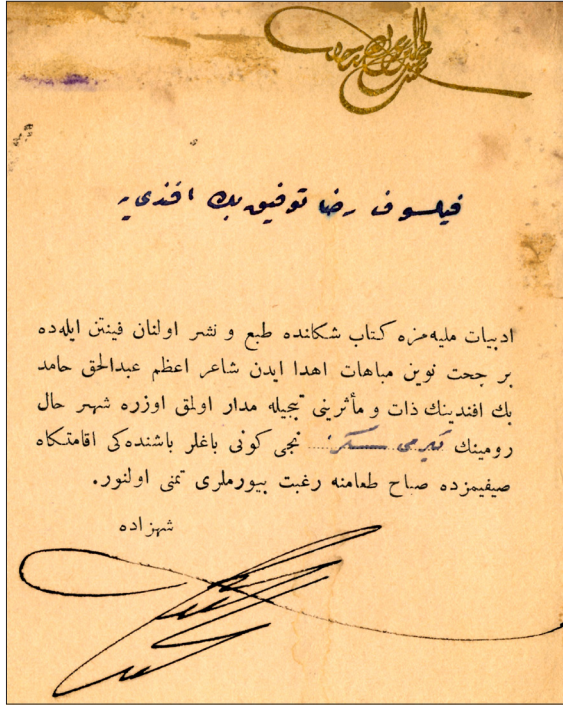 فيلسوف رضا توفيق بك افندى يه
ادبيات مليه‌مزه كتاب شكلنده طبع و نشر اولنان فينتن ايله‌ده
بر حجت نوين مباهات اهدا ايدن شاعر اعظم عبدالحق حامد
بك افندينك ذات و مأثرينى تبجيله مدار اولمق اوزره شهر حال
رومينك يكرمى سكز نجى كونى باغلر باشنده‌كى اقامتكاه
صيفيمزده صباح طعامنه رغبت بيورملرى تمنى اولنور.
شهزاده